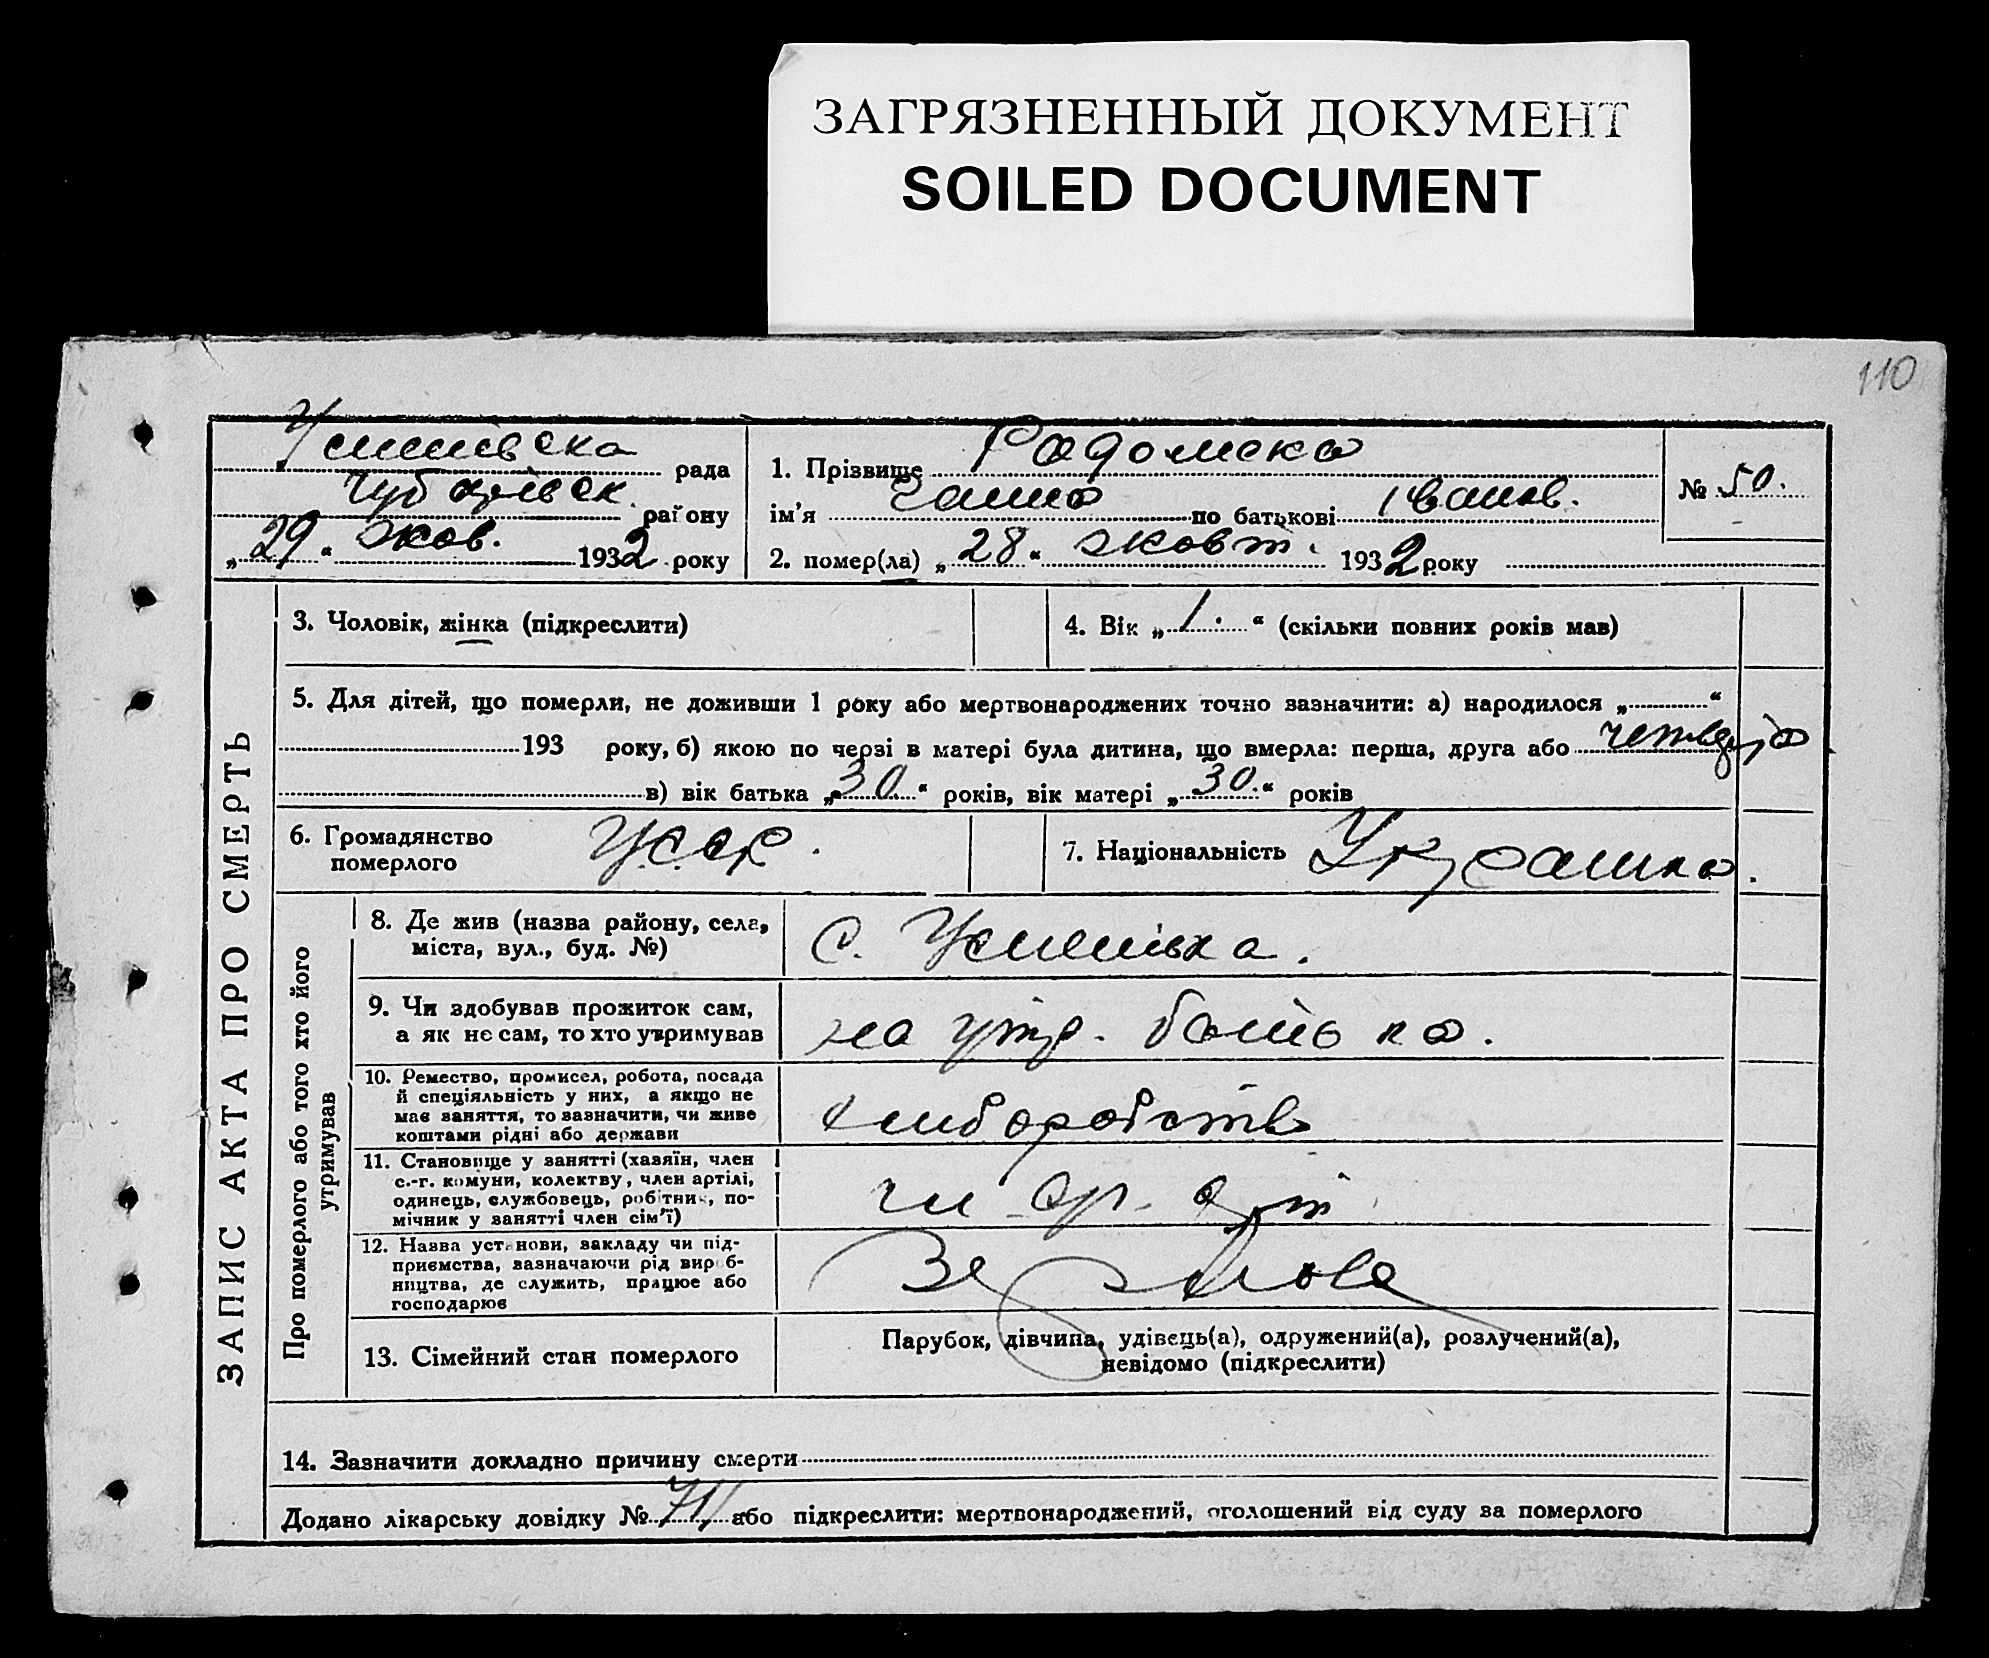 ЗАГРЯЗНЕННЫЙ ДОКУМЕНТ
SOILED DOCUMENT
110
Успенівська рада
Чубарівськ. району
„29“ жов. 1932 року
1. Прізвище Радомска
ім'я Ганна по батькові Іванов.
2. помер(ла) „28“ жовт. 1932 року
№ 50.
ЗАПИС АКТА ПРО СМЕРТЬ
3. Чоловік, жінка (підкреслити)
4. Вік „1.“ (скільки повних років мав)
5. Для дітей, що померли, не доживши 1 року або мертвонароджених точно зазначити: а) народилося „ “
193 року, б) якою по черзі в матері була дитина, що вмерла: перша, друга або четверта
в) вік батька „30“ років, вік матері „30.“ років
6. Громадянство
померлого
УССР.
7. Національність Українка.
Про померлого або того хто його
утримував
8. Де жив (назва району, села,
міста, вул., буд. №)
с. Успенівка.
9. Чи здобував прожиток сам,
а як не сам, то хто утримував
на утр. батька.
10. Ремество, промисел, робота, посада
й спеціяльність у них, а якщо не
має заняття, то зазначити, чи живе
коштами рідні або держави
хлиборобств
11. Становище у занятті (хазяїн, член
с.-г. комуни, колектву, член артілі,
одинець, службовець, робітник, по-
мічник у занятті член сім'ї)
12. Назва установи, закладу чи під-
приємства, зазначаючи рід вироб-
ництва, де служить, працює або
господарює
13. Сімейний стан померлого
Парубок, дівчина, удівець(а), одружений(а), розлучений(а),
невідомо (підкреслити)
14. Зазначити докладно причину смерти
Додано лікарську довідку № або підкреслити: мертвонароджений, оголошений від суду за померлого